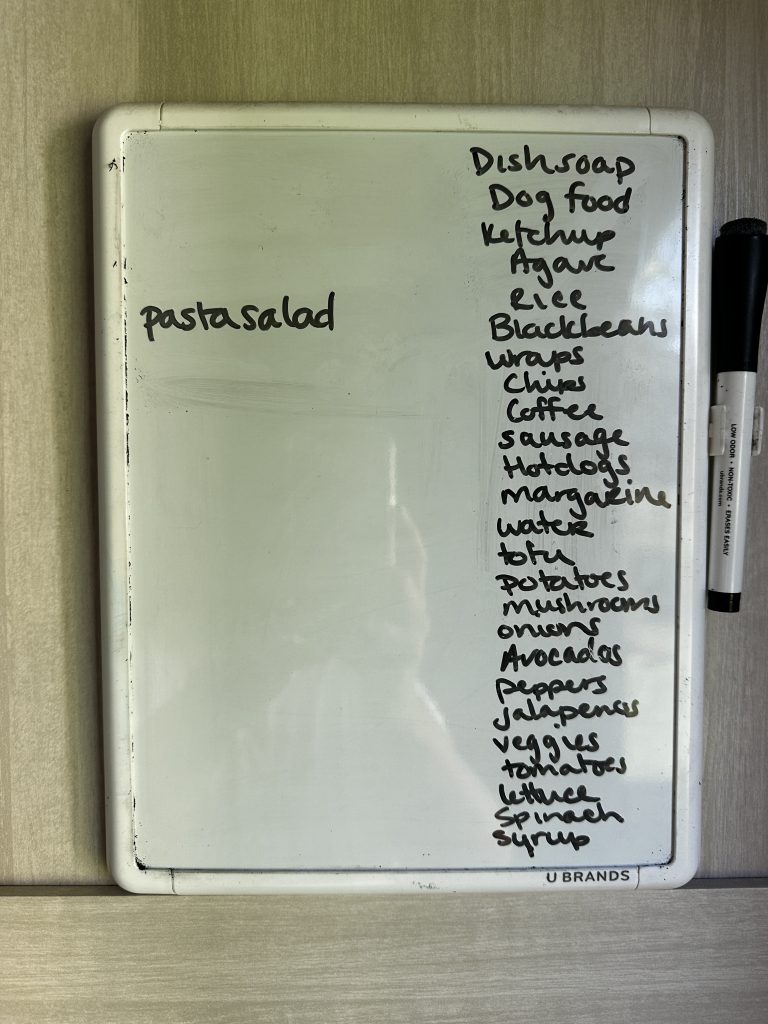 Dishsoap
Dog food
Ketchup
Agave
Rice
pastasalad
Blackbeans
wraps
Chips
Coffee
sausage
Hotdogs
margarine
water
tofu
potatoes
mushrooms
onions
Avocados
peppers
jalapenos
veggies
tomatoes
lettuce
spinach
syrup
U BRANDS
LOW ODOR • NON-TOXIC • ERASES EASILY
ubrands.com